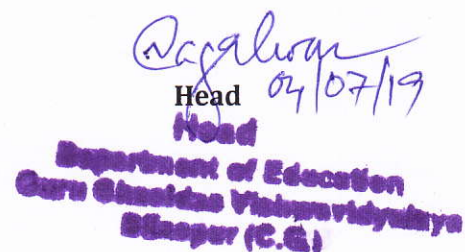 Head 04/07/19
Head
Department of Education
Guru Ghasidas Vishwavidyalaya
Bilaspur (C.G)